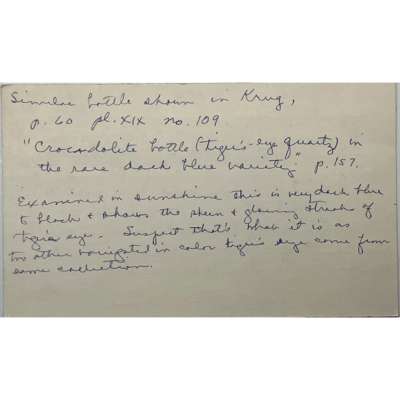 Similar bottle shown in Krug,
p. 60 pl. XIX no. 109.
"Crocodolite bottle (tiger's-eye quartz) in
the rare dark blue variety" p. 157.
Examined in sunshine this is very dark blue
to black & shows the sheen & glowing streak of
tiger's eye. Suspect that's what it is as
two other variegated in color tiger's eye come from
same collection.